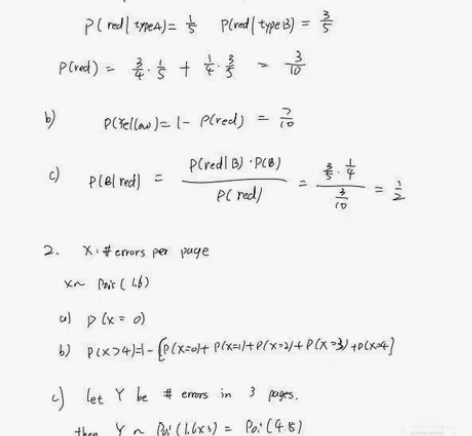 P(red|typeA) = 1/5 P(red|typeB) = 3/5
P(red) = 3/4 · 1/5 + 1/4 · 3/5 = 3/10
b) P(Yellow) = 1 - P(red) = 7/10
c) P(B|red) = P(red|B)·P(B) / P(red) = 3/5 · 1/4 / 3/10 = 1/2
2. X: # errors per page
X~ Pois(1.6)
a) P(X = 0)
b) P(X>4)=1-[P(X=0)+P(X=1)+P(X=2)+P(X=3)+P(X=4]
c) let Y be # errors in 3 pages.
then Y ~ Poi(1.6x3) = Poi(4.8)